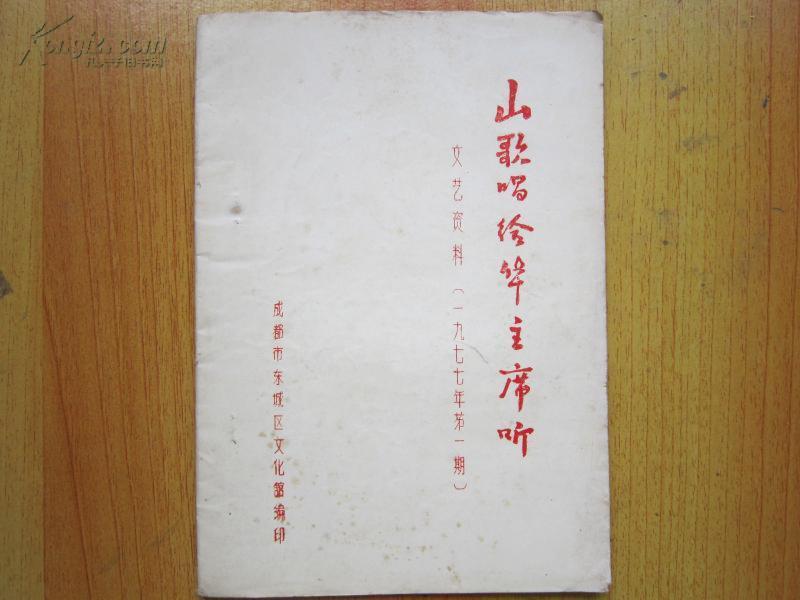 山歌唱给华主席听
文艺资料（一九七七年第一期）
成都市东城区文化馆编印
Kongfz.com
孔夫子旧书网